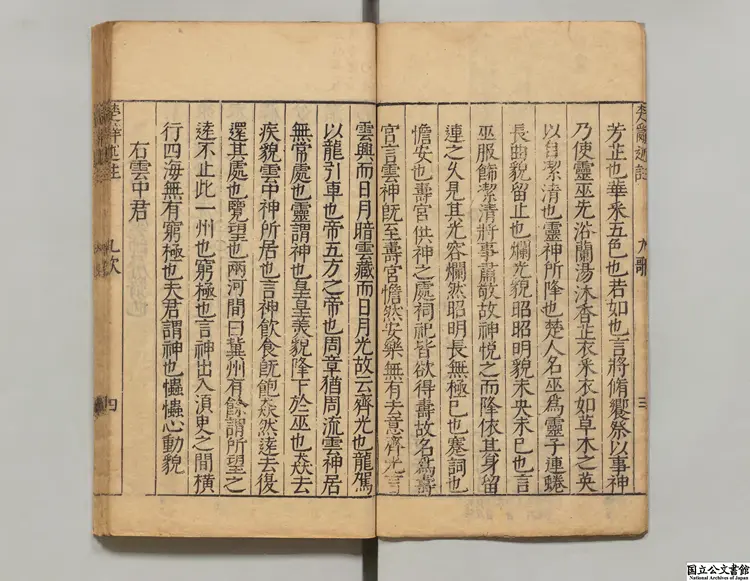 楚辭述註 九歌 三
芳芷也華采五色也若如也言將脩饗祭以事神
乃使靈巫先浴蘭湯沐香芷衣采衣如草木之英
以自潔清也靈神所降也楚人名巫爲靈子連蜷
長曲貌留止也爛光貌昭昭明貌未央未已也言
巫服飾潔清將事肅敬故神悅之而降依其身留
連之久見其光容爛然昭明長無極已也蹇詞也
憺安也壽宮供神之處祠祀皆欲得壽故名爲壽
宮言雲神旣至壽宮憺然安樂無有去意齊光言
雲興而日月暗雲藏而日月光故云齊光也龍駕
以龍引車也帝五方之帝也周章猶周流雲神居
無常處也靈謂神也皇皇美貌降下於巫也猋去
疾貌雲中神所居也言神飲食旣飽猋然遠去復
還其處也覽望也兩河間曰冀州有餘謂所望之
遠不止此一州也窮極也言神出入須臾之間橫
行四海無有窮極也夫君謂神也𢥞𢥞心動貌
右雲中君
楚辭述註 九歌 四
国立公文書館
National Archives of Japan